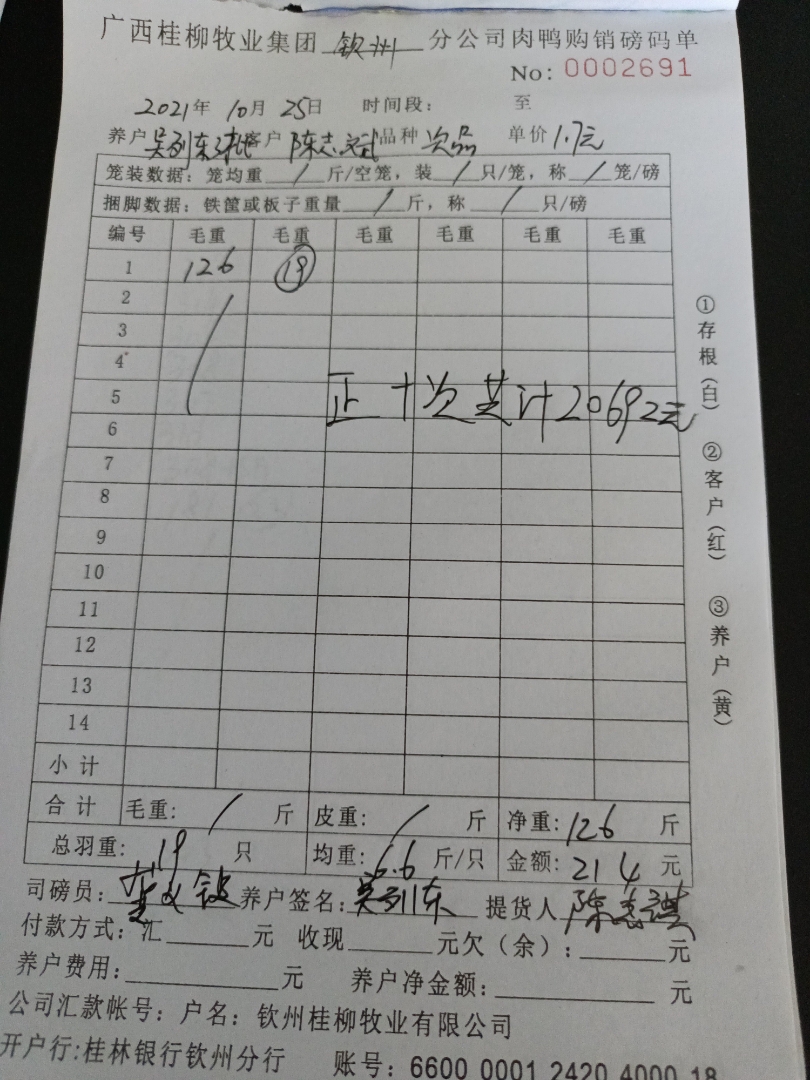 广西桂柳牧业集团 钦州 分公司肉鸭购销磅码单
No: 0002691
2021年 10月 25日 时间段: 至
养户 吴列东 客户 陈志斌 品种 次品 单价 1.7元
笼装数据: 笼均重 / 斤/空笼, 装 / 只/笼, 称 / 笼/磅
捆脚数据: 铁筐或板子重量 / 斤, 称 / 只/磅
编号 毛重 毛重 毛重 毛重 毛重 毛重
1 126 19
2
3
4
5
正十次芝计20692元
6
7
8
9
10
11
12
13
14
小计
合计 毛重: / 斤 皮重: / 斤 净重: 126 斤
总羽重: 19 只 均重: 6.6 斤/只 金额: 214 元
司磅员: 养户签名: 吴列东 提货人 陈志
付款方式: 汇 元 收现 元欠(余): 元
养户费用: 元 养户净金额: 元
公司汇款帐号: 户名: 钦州桂柳牧业有限公司
开户行:桂林银行钦州分行 账号: 6600 0001 2420 4000 18
①存根(白) ②客户(红) ③养户(黄)